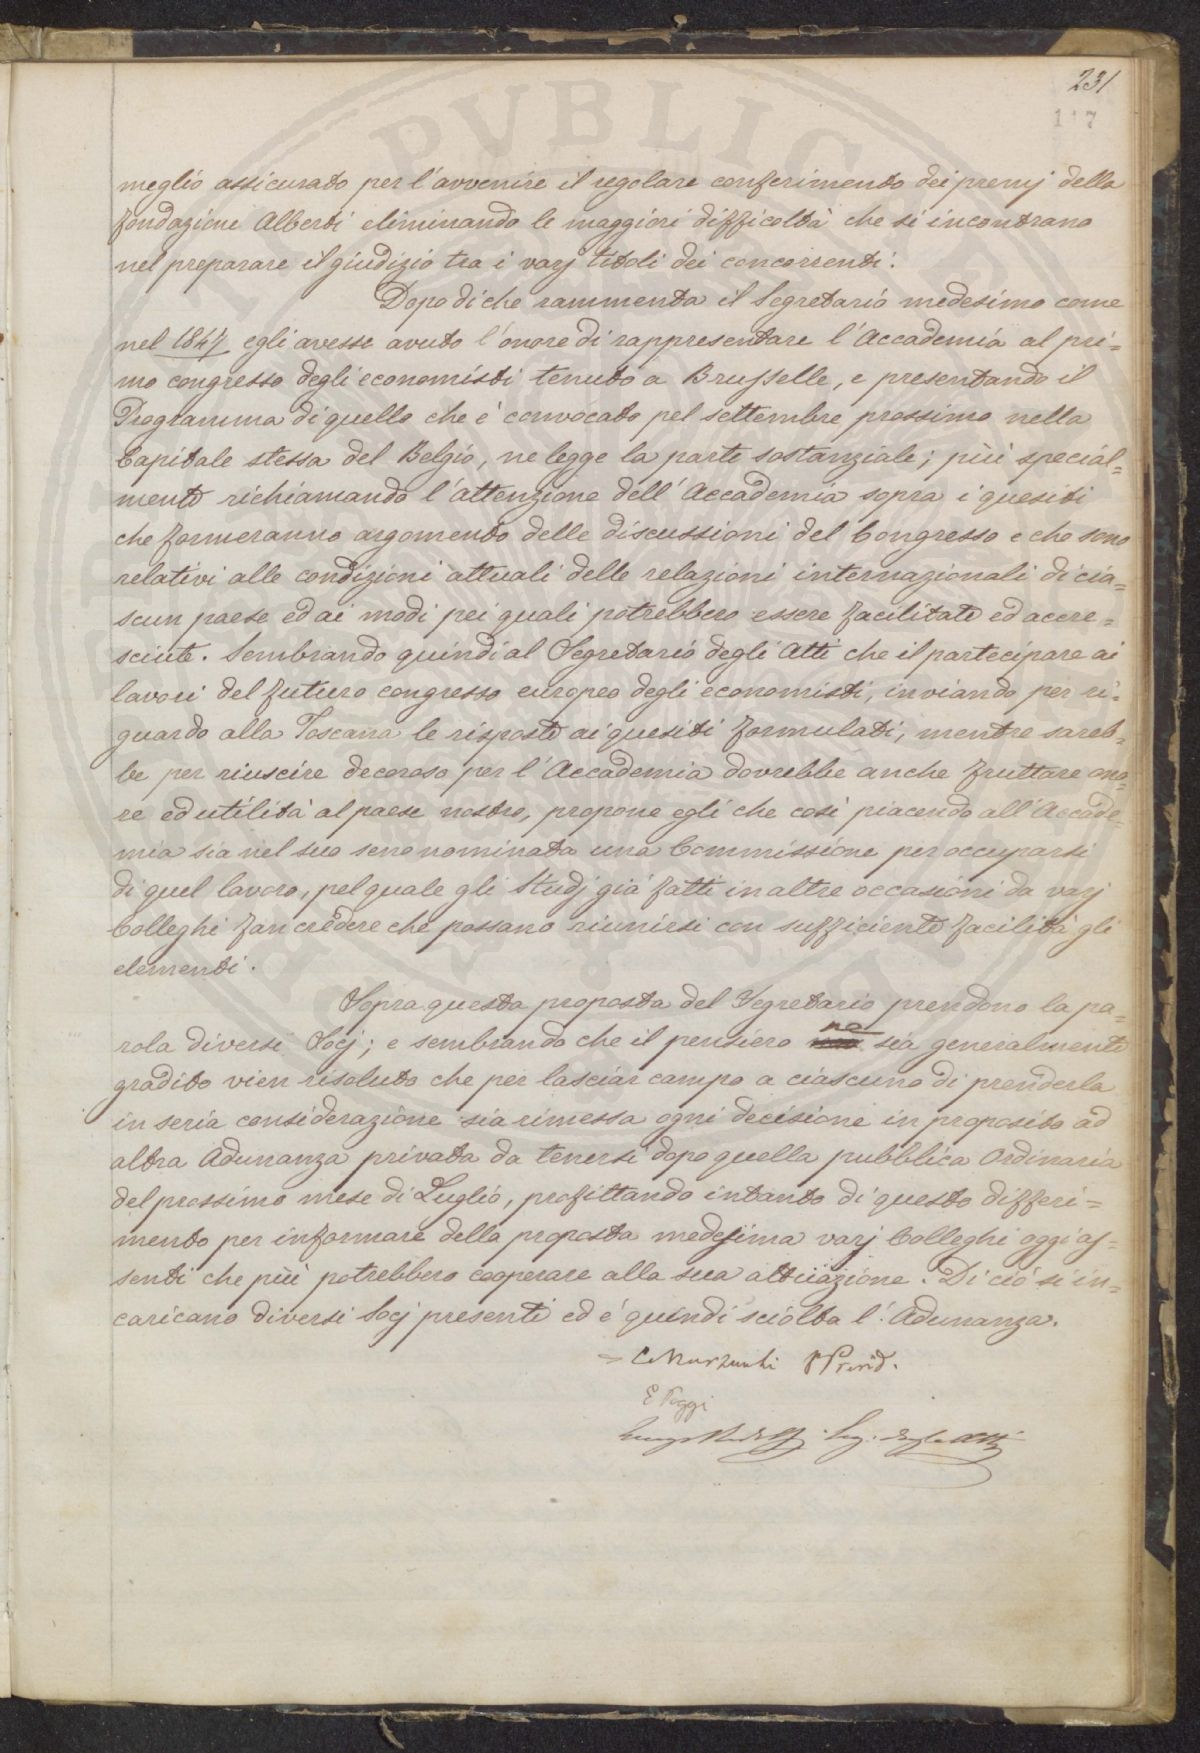 231
117
PVBLIC
meglio assicurato per l'avvenire il regolare conferimento dei premj della
fondazione Alberti eliminando le maggiori difficoltà che si incontrano
nel preparare il giudizio tra i varj titoli dei concorrenti.
Dopo di che rammenta il Segretario medesimo come
nel 1847 egli avesse avuto l'onore di rappresentare l'Accademia al pri=
mo congresso degli economisti tenuto a Brusselle, e presentando il
Programma di quello che è convocato pel settembre prossimo nella
Capitale stessa del Belgio, ne legge la parte sostanziale; più special=
mente richiamando l'attenzione dell'Accademia sopra i quesiti
che formeranno argomento delle discussioni del Congresso e che sono
relativi alle condizioni attuali delle relazioni internazionali di cia=
scun paese ed ai modi pei quali potrebbero essere facilitate ed accre=
sciute. Sembrando quindi al Segretario degli Atti che il partecipare ai
lavori del futuro congresso europeo degli economisti, inviando per ri=
guardo alla Toscana le risposte ai quesiti formulati, mentre sareb=
be per riuscire decoroso per l'Accademia dovrebbe anche fruttare ono=
re ed utilità al paese nostro, propone egli che così piacendo all'Accade=
mia sia nel suo seno nominata una Commissione per occuparsi
di quel lavoro, pel quale gli Studj già fatti in altre occasioni da varj
Colleghi fan credere che possano riunirsi con sufficiente facilità gli
elementi.
Sopra questa proposta del Segretario prendono la pa=
rola diversi Socj; e sembrando che il pensiero ne sia generalmente
gradito vien risoluto che per lasciar campo a ciascuno di prenderla
in seria considerazione sia rimessa ogni decisione in proposito ad
altra Adunanza privata da tenersi dopo quella pubblica Ordinaria
del prossimo mese di Luglio, profittando intanto di questo differi=
mento per informare della proposta medesima varj Colleghi oggi as=
senti che più potrebbero cooperare alla sua attuazione. Di ciò si in=
caricano diversi Socj presenti ed è quindi sciolta l'Adunanza.
E Poggi